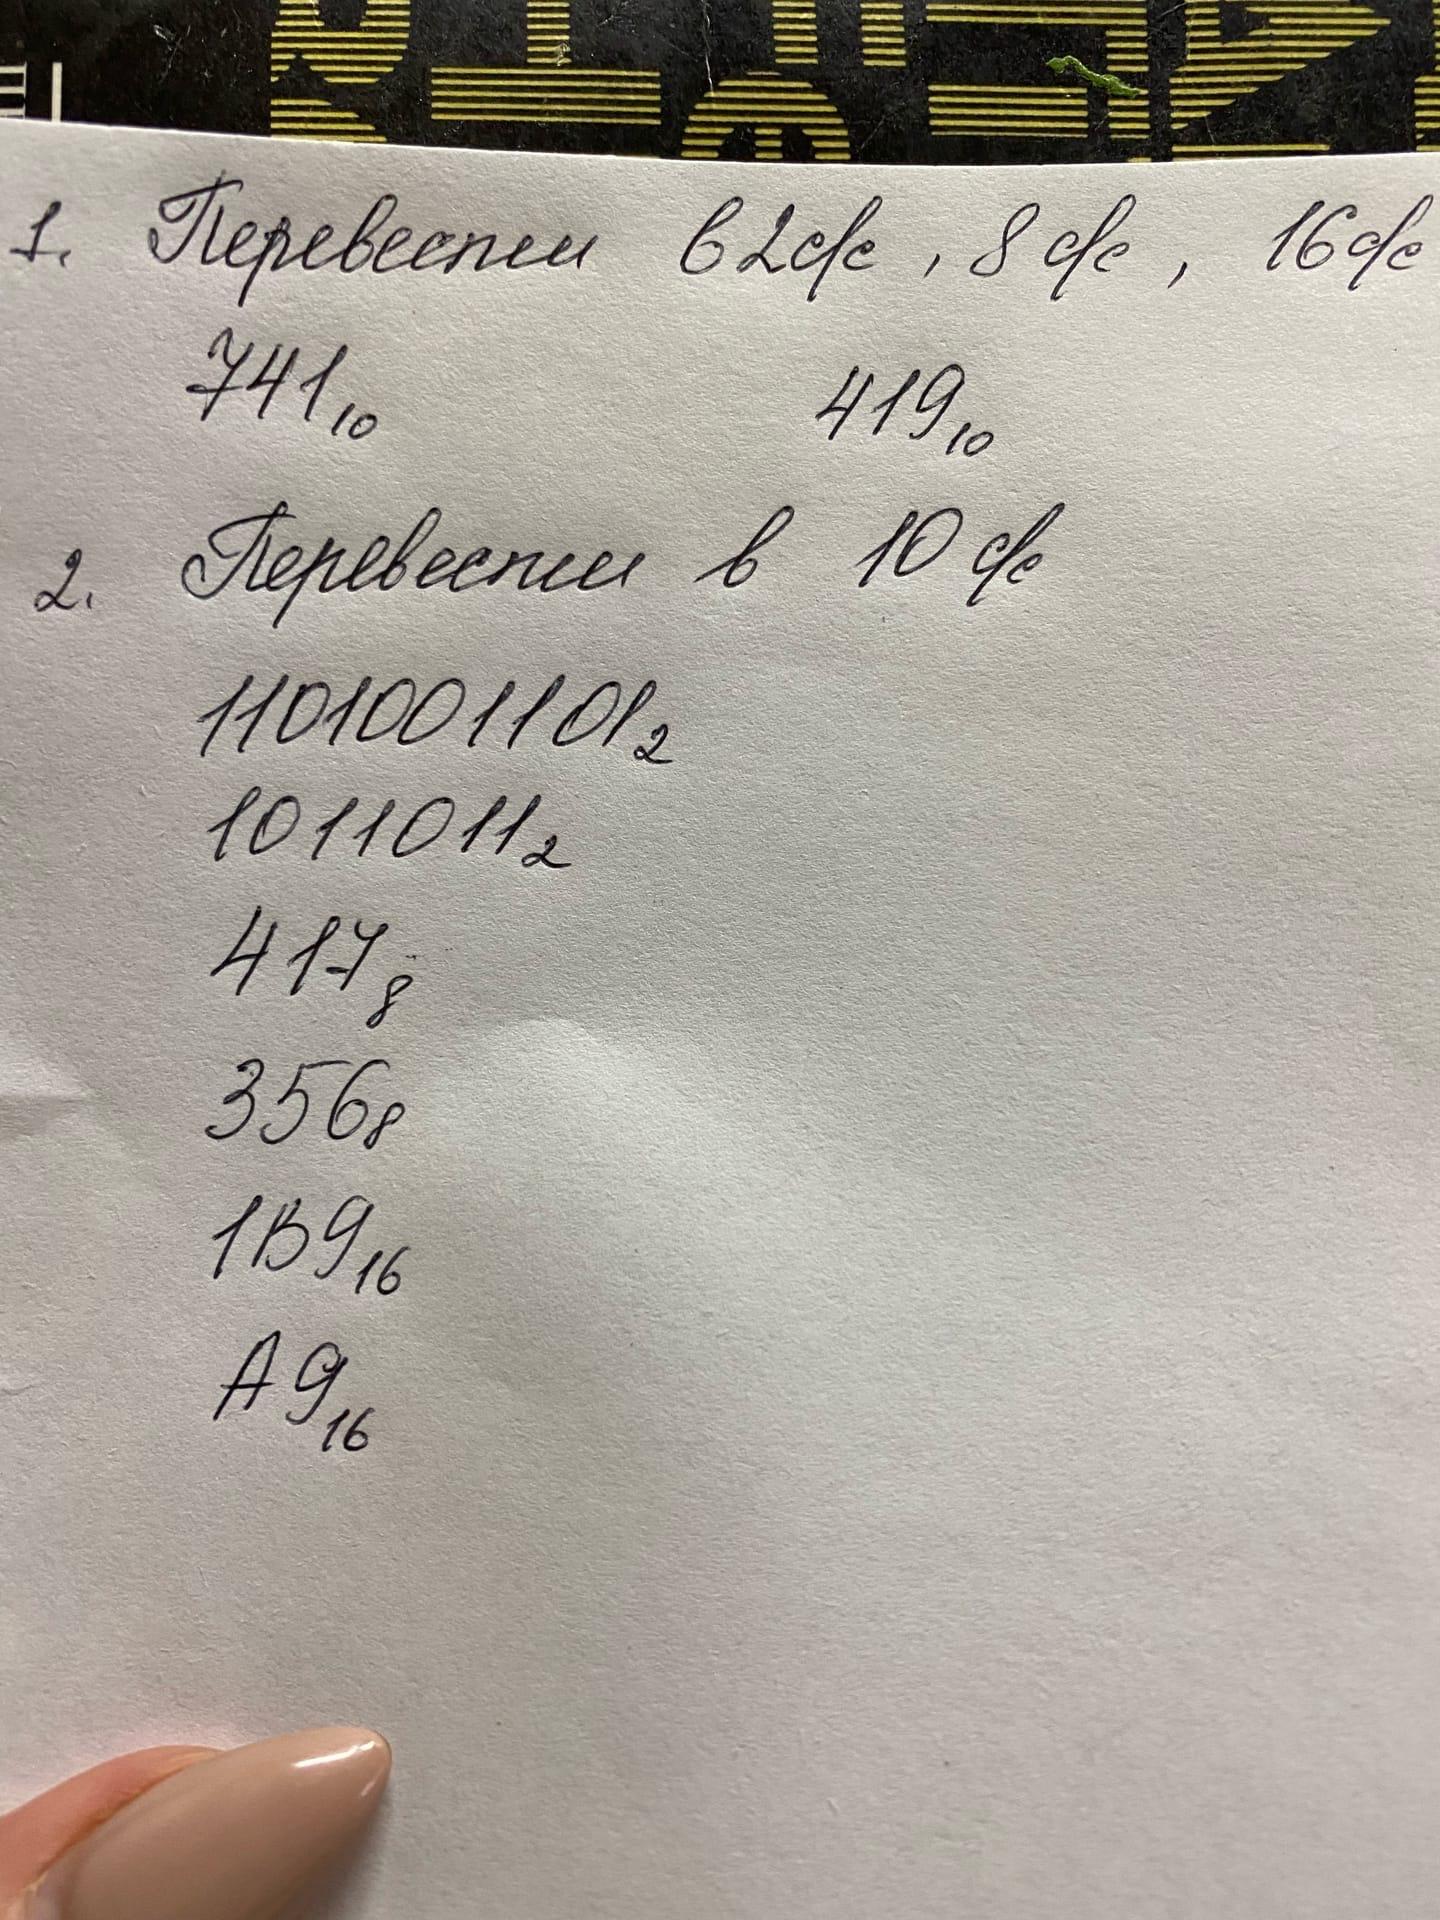 1. Перевести в 2с/с, 8 с/с, 16 с/с
741₁₀ 419₁₀
2. Перевести в 10 с/с
1101001101₂
1011011₂
417₈
356₈
1В9₁₆
А9₁₆